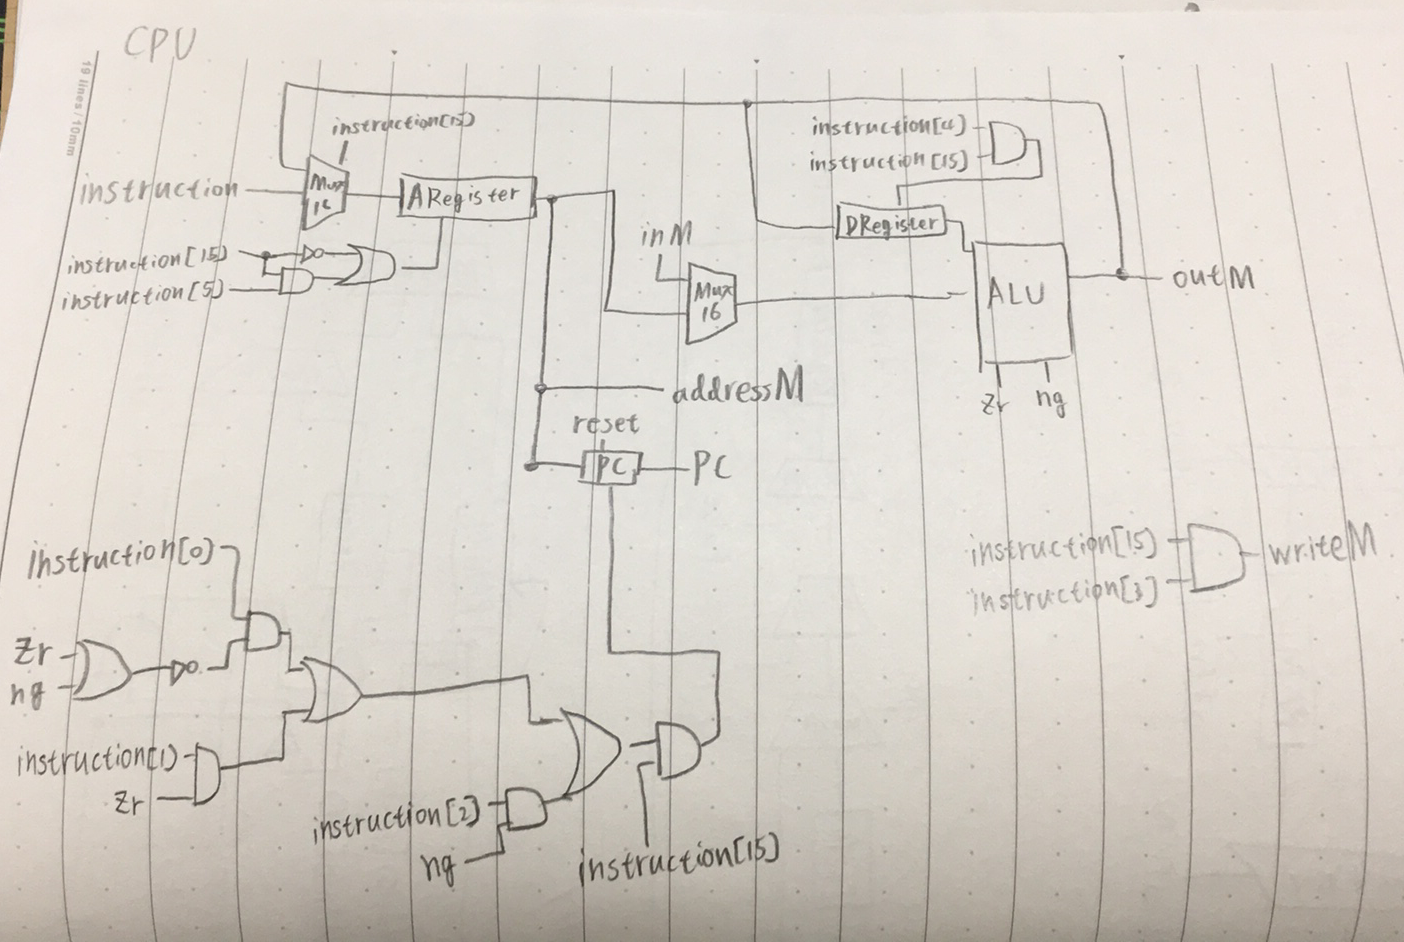 CPU
19 lines / 10mm
instruction[15]
instruction
Mux
16
A Register
instruction[15]
instruction[5]
instruction[4]
instruction[15]
DRegister
inM
Mux
16
ALU
outM
zr
ng
addressM
reset
PC
PC
instruction[15]
instruction[3]
writeM
instruction[0]
zr
ng
instruction[1]
zr
instruction[2]
ng
instruction[15]